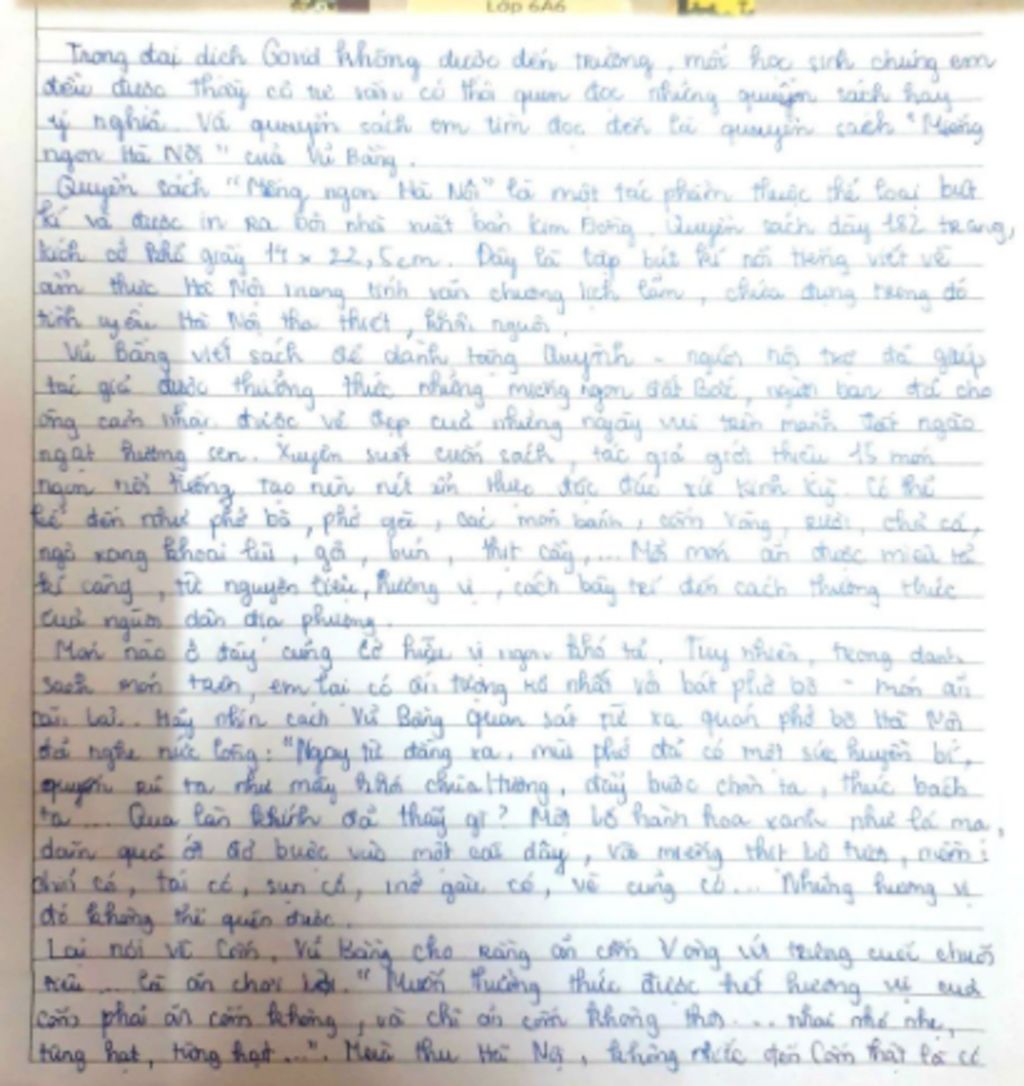 Lớp 6A6
Trong đại dịch Covid không được đến trường, mỗi học sinh chúng em
đều được thầy cô tư vấn có thói quen đọc những quyển sách hay
ý nghĩa. Và quyển sách em tìm đọc đến là quyển sách "Miếng
ngon Hà Nội" của Vũ Bằng.
Quyển sách "Miếng ngon Hà Nội" là một tác phẩm thuộc thể loại bút
kí và được in ra bởi nhà xuất bản Kim Đồng. Quyển sách dày 182 trang,
kích cỡ khổ giấy 14 x 22,5cm. Đây là tập bút kí nổi tiếng viết về
ẩm thực Hà Nội mang tính văn chương lịch lãm, chứa đựng trong đó
tình yêu Hà Nội tha thiết, khôn nguôi.
Vũ Bằng viết sách để dành tặng Quỳnh - người nội trợ đã giúp
tác giả được thưởng thức những miếng ngon đất Bắc, người bạn đã cho
ông cảm nhận được vẻ đẹp của những ngày vui trên mảnh đất ngào
ngạt hương sen. Xuyên suốt cuốn sách, tác giả giới thiệu 15 món
ngon nổi tiếng tạo nên nét ẩm thực độc đáo xứ kinh kỳ. Có thể
kể đến như phở bò, phở gà, các món bánh, cốm Vòng, rươi, chả cá,
ngô rang khoai lùi, gỏi, bún, thịt cầy,... Mỗi món ăn được miêu tả
kĩ càng, từ nguyên liệu, hương vị, cách bày trí đến cách thưởng thức
của người dân địa phương.
Món nào ở đây cũng có hương vị ngon khó tả. Tuy nhiên, trong danh
sách món trên, em lại có ấn tượng rõ nhất với bát phở bò - món ăn
căn bản. Hãy nhìn cách Vũ Bằng quan sát từ xa quán phở bò Hà Nội
đã nghe nức lòng: "Ngay từ đằng xa, mùi phở đã có một sức huyền bí,
quyến rũ ta như mây khói chùa Hương, đẩy bước chân ta, thúc bách
ta... Qua lần khính đã thấy gì? Một bó hành hoa xanh như lá mạ,
dăm quả ớt đỏ buộc vào một cái dây, vài miếng thịt bò tươi, mềm:
chín có, tái có, sụn có, mỡ gầu có, vè cũng có... Những hương vị
đó không thể quên được.
Lại nói về Cốm, Vũ Bằng cho rằng ăn cốm Vòng với trứng cuốc chuối
tiêu... là ăn chơi bời. "Muốn thưởng thức được hết hương vị của
cốm phải ăn cốm không, và chỉ ăn cốm không thôi... nhai nhỏ nhẹ,
từng hạt, từng hạt...". Mùa thu Hà Nội, không nhắc đến Cốm thật là có